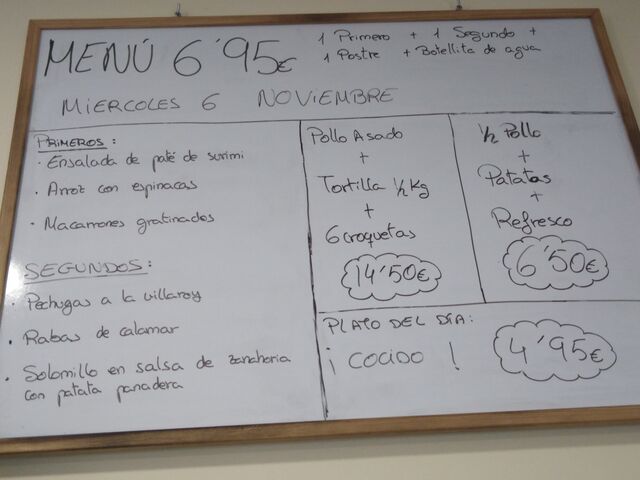 MENÚ 6'95€
1 Primero + 1 Segundo +
1 Postre + Botellita de agua
MIERCOLES 6 NOVIEMBRE
PRIMEROS:
· Ensalada de paté de surimi
· Arroz con espinacas
· Macarrones gratinados
SEGUNDOS:
· Pechugas a la villaroy
· Rabas de calamar
· Solomillo en salsa de zanahoria
con patata panadera
Pollo Asado
+
Tortilla 1/2 Kg
+
6 croquetas
14'50€
1/2 Pollo
+
Patatas
+
Refresco
6'50€
PLATO DEL DÍA:
¡ COCIDO !
4'95€